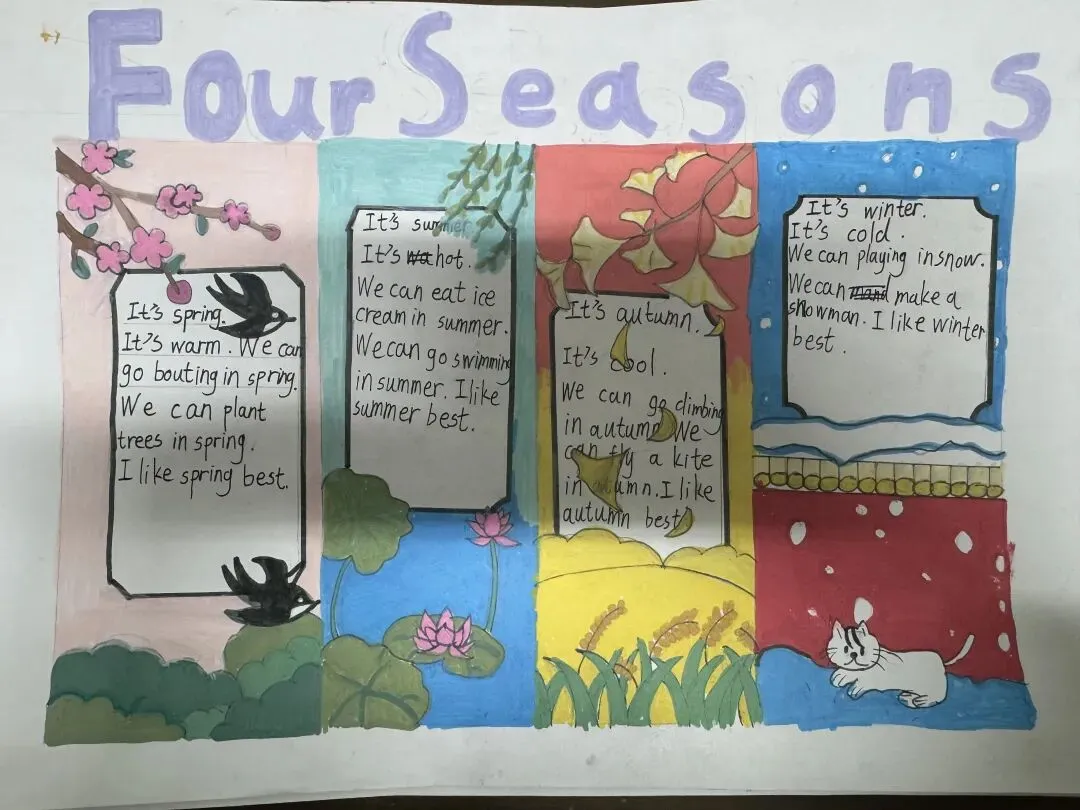 Four Seasons
It's spring.
It's warm. We can
go bouting in spring.
We can plant
trees in spring.
I like spring best.
It's summer
It's hot.
We can eat ice
cream in summer.
We can go swimming
in summer. I like
summer best.
It's autumn.
It's cool.
We can go climbing
in autumn We
can fly a kite
in autumn. I like
autumn best
It's winter.
It's cold.
We can playing in snow.
We can make a
snowman. I like winter
best.